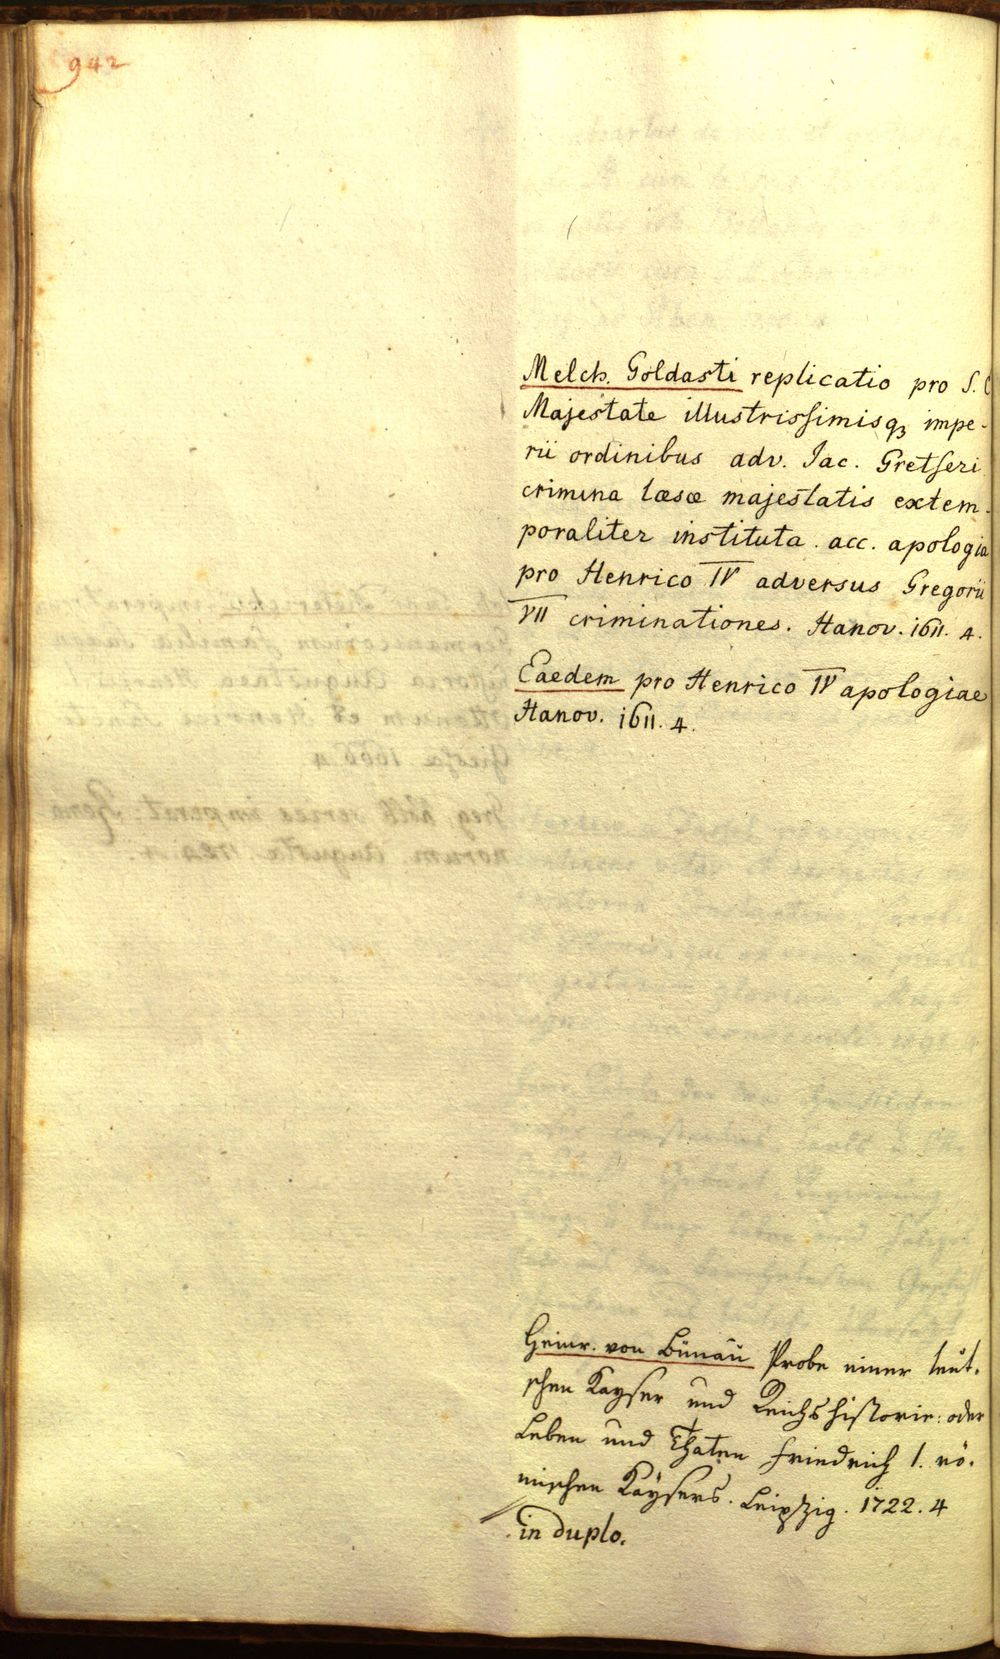 942
Melch. Goldasti replicatio pro S. C
Majestate illustrissimisq₃ impe-
rii ordinibus adv. Jac. Gretseri
crimina læsæ majestatis extem-
poraliter instituta. acc. apologia
pro Henrico IV adversus Gregorii
VII criminationes. Hanov. 1611. 4.
Eaedem pro Henrico IV apologiae
Hanov. 1611. 4.
Heinr. von Bünaü Probe einer teut-
schen Kayser und Reichshistorie: oder
Leben und Thaten Friedrich I. rö-
mischen Kaÿsers. Leipzig. 1722. 4
in duplo.